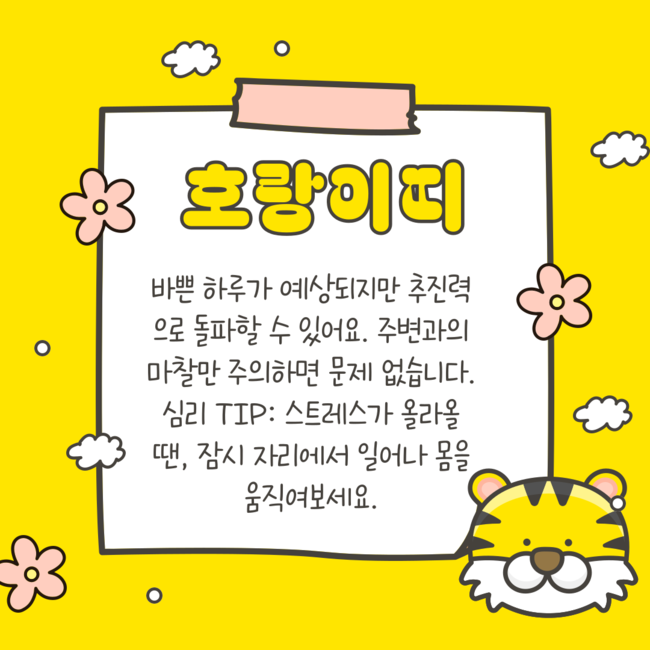 호랑이띠
바쁜 하루가 예상되지만 추진력
으로 돌파할 수 있어요. 주변과의
마찰만 주의하면 문제 없습니다.
심리 TIP: 스트레스가 올라올
땐, 잠시 자리에서 일어나 몸을
움직여보세요.